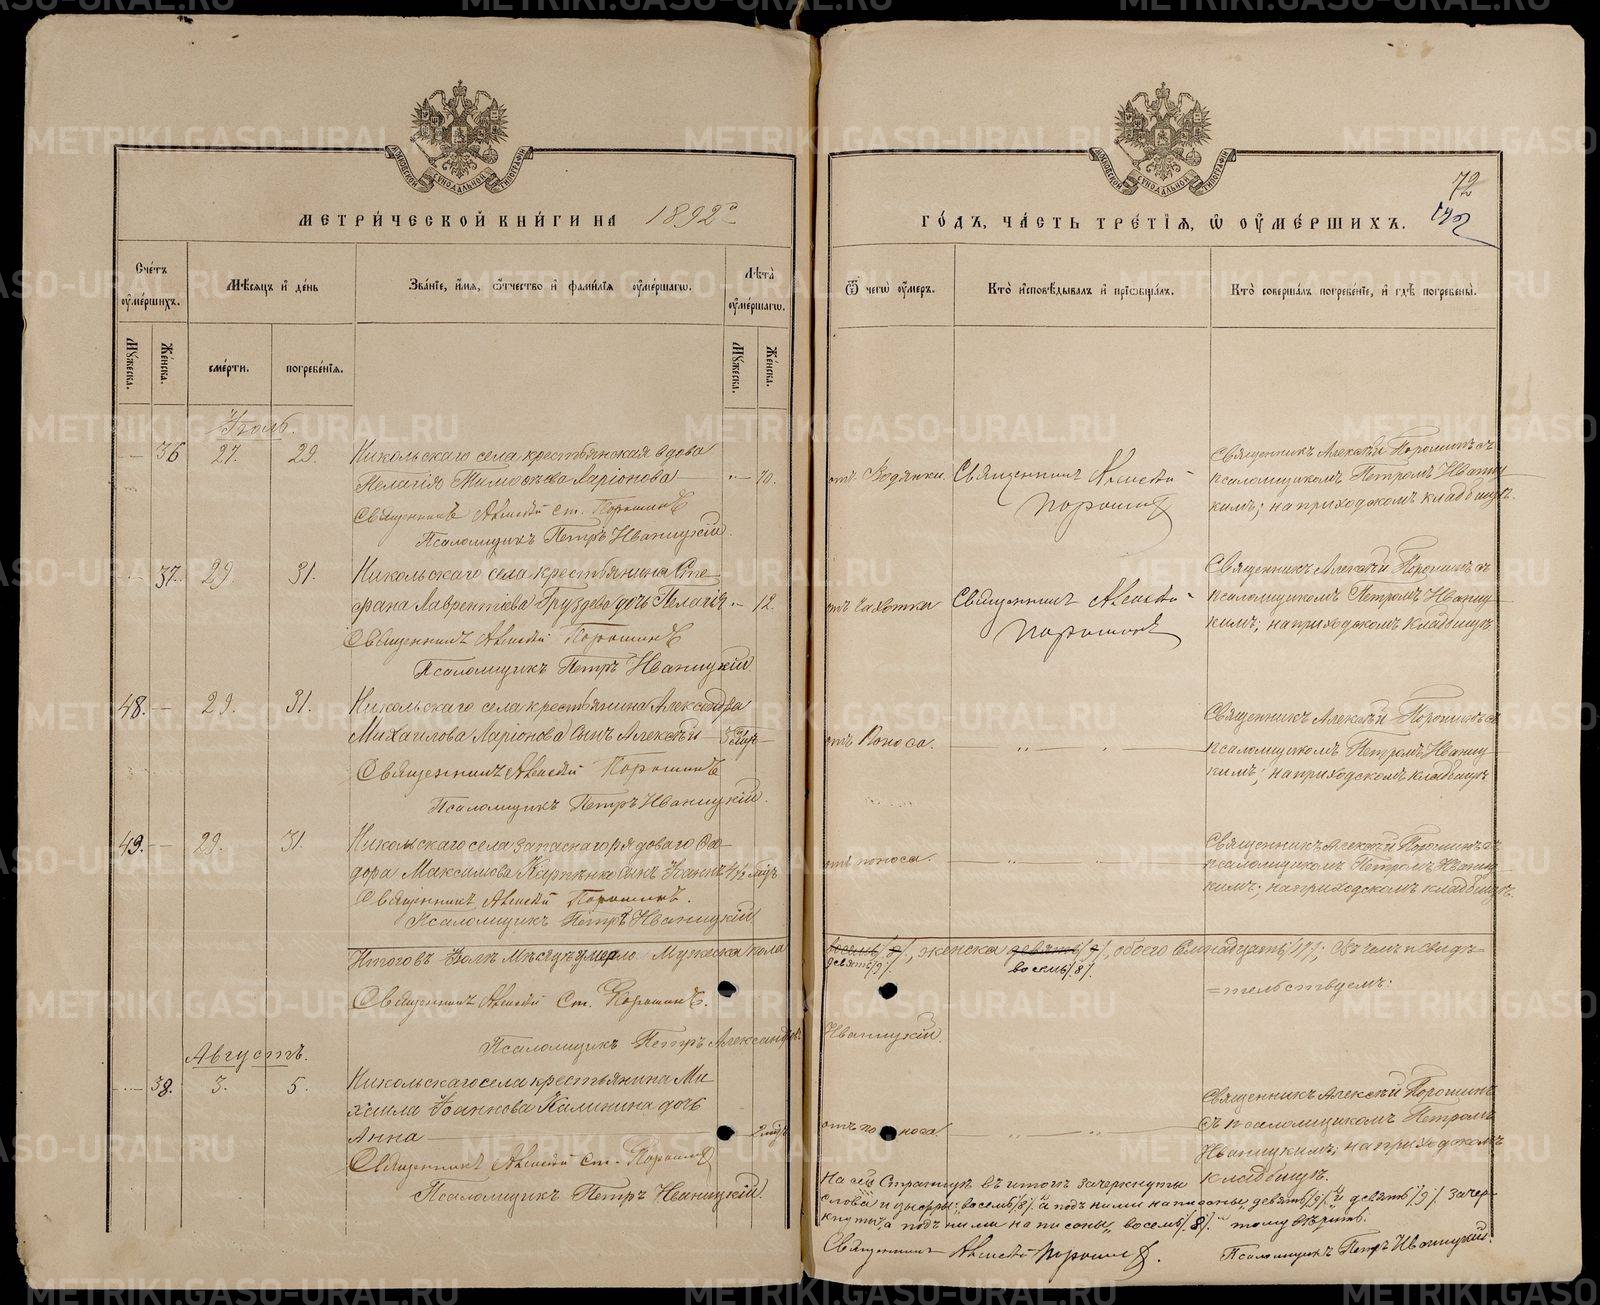 МЕТРИ́ЧЕСКОЙ КНИ́ГИ НА 1892 ГО́ДЪ, ЧА́СТЬ ТРЕ́ТІѦ, Ѿ ОУ҆МЕ́РШИХЪ.
72
Счётъ оу҆мершихъ.
Мѣсяцъ и҆ де́нь
Зва́нїе, и҆́мѧ, ѻ҆́тчество и҆ фами́лїѧ оу҆ме́ршагѡ.
Лѣта̀ оу҆ме́ршагѡ.
Ѿ чегѡ̀ оу҆́меръ.
Кто̀ и҆сповѣ́дывалъ и҆ прїѡбща́лъ.
Кто̀ соверша́лъ погребе́нїе, и҆ гдѣ̀ погребены̀.
Мꙋ́жеска.
Же́нска.
сме́рти.
погребе́нїѧ.
Мꙋ́жеска.
Же́нска.
Іюль.
36 27. 29. Никольскаго села крестьянская вдова
Пелагія Тимоѳѣева Ларіонова 70.
Священникъ Алексѣй Ст. Порошинъ
Псаломщикъ Петръ Иваницкій.
отъ Водянки. Священникъ Алексѣй
Порошинъ
Священникъ Алексѣй Порошинъ съ
псаломщикомъ Петромъ Иваниц
кимъ; на приходскомъ кладбищѣ.
37. 29. 31. Никольскаго села крестьянина Сте-
фана Лаврентіева Груздева дочь Пелагія 12.
Священникъ Алексѣй Порошинъ
Псаломщикъ Петръ Иваницкій.
отъ Чахотки Священникъ Алексѣй
Порошинъ
Священникъ Алексѣй Порошинъ съ
псаломщикомъ Петромъ Иваниц
кимъ; на приходскомъ кладбищѣ
48. 29. 31. Никольскаго села крестьянина Александра
Михаилова Ларіонова сынъ Алексѣй
Священникъ Алексѣй Порошинъ
Псаломщикъ Петръ Иваницкій.
отъ Поноса.
Священникъ Алексѣй Порошинъ съ
псаломщикомъ Петромъ Иваниц
кимъ; на приходскомъ кладбищѣ
49. 29. 31. Никольскаго села запаснаго рядоваго Ѳео-
дора Максимова Карпенко сынъ Іоаннъ
Священникъ Алексѣй Порошинъ.
Псаломщикъ Петръ Иваницкій
отъ поноса.
Священникъ Алексѣй Порошинъ съ
псаломщикомъ Петромъ Иваниц
кимъ; на приходскомъ кладбищѣ.
Итого въ Іюлѣ мѣсяцѣ умерло Мужеска пола восемь /8/, женска девять /9/, обоего Семнадцать /17/; Въ чемъ и свидѣ-
девять /9/. восемь /8/.
=тельствуемъ:
Священникъ Алексѣй Ст. Порошинъ.
Псаломщикъ Петръ Александров. Иваницкій.
Августъ.
38. 3. 5. Никольскаго села крестьянина Ми
хаила Іоаннова Калинина дочь
Анна 2
Священникъ Алексѣй Ст. Порошинъ
Псаломщикъ Петръ Иваницкій.
отъ поноса.
Священникъ Алексѣй Порошинъ
съ псаломщикомъ Петромъ
Иваницкимъ; на приходскомъ
кладбищѣ.
На сей Страницѣ въ итогѣ зачеркнуты
слова и цыфры: восемь /8/ и подъ ними написаны девять /9/ и девять /9/ зачер-
кнуты, а подъ ними написаны восемь /8/. тому вѣрить.
Священникъ Алексѣй Порошинъ. Псаломщикъ Петръ Иваницкій.
METRIKI.GASO-URAL.RU